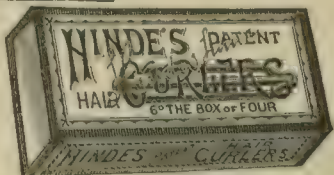 HINDES PATENT
HAIR CURLERS
6D THE BOX OF FOUR
HINDES HAIR CURLERS